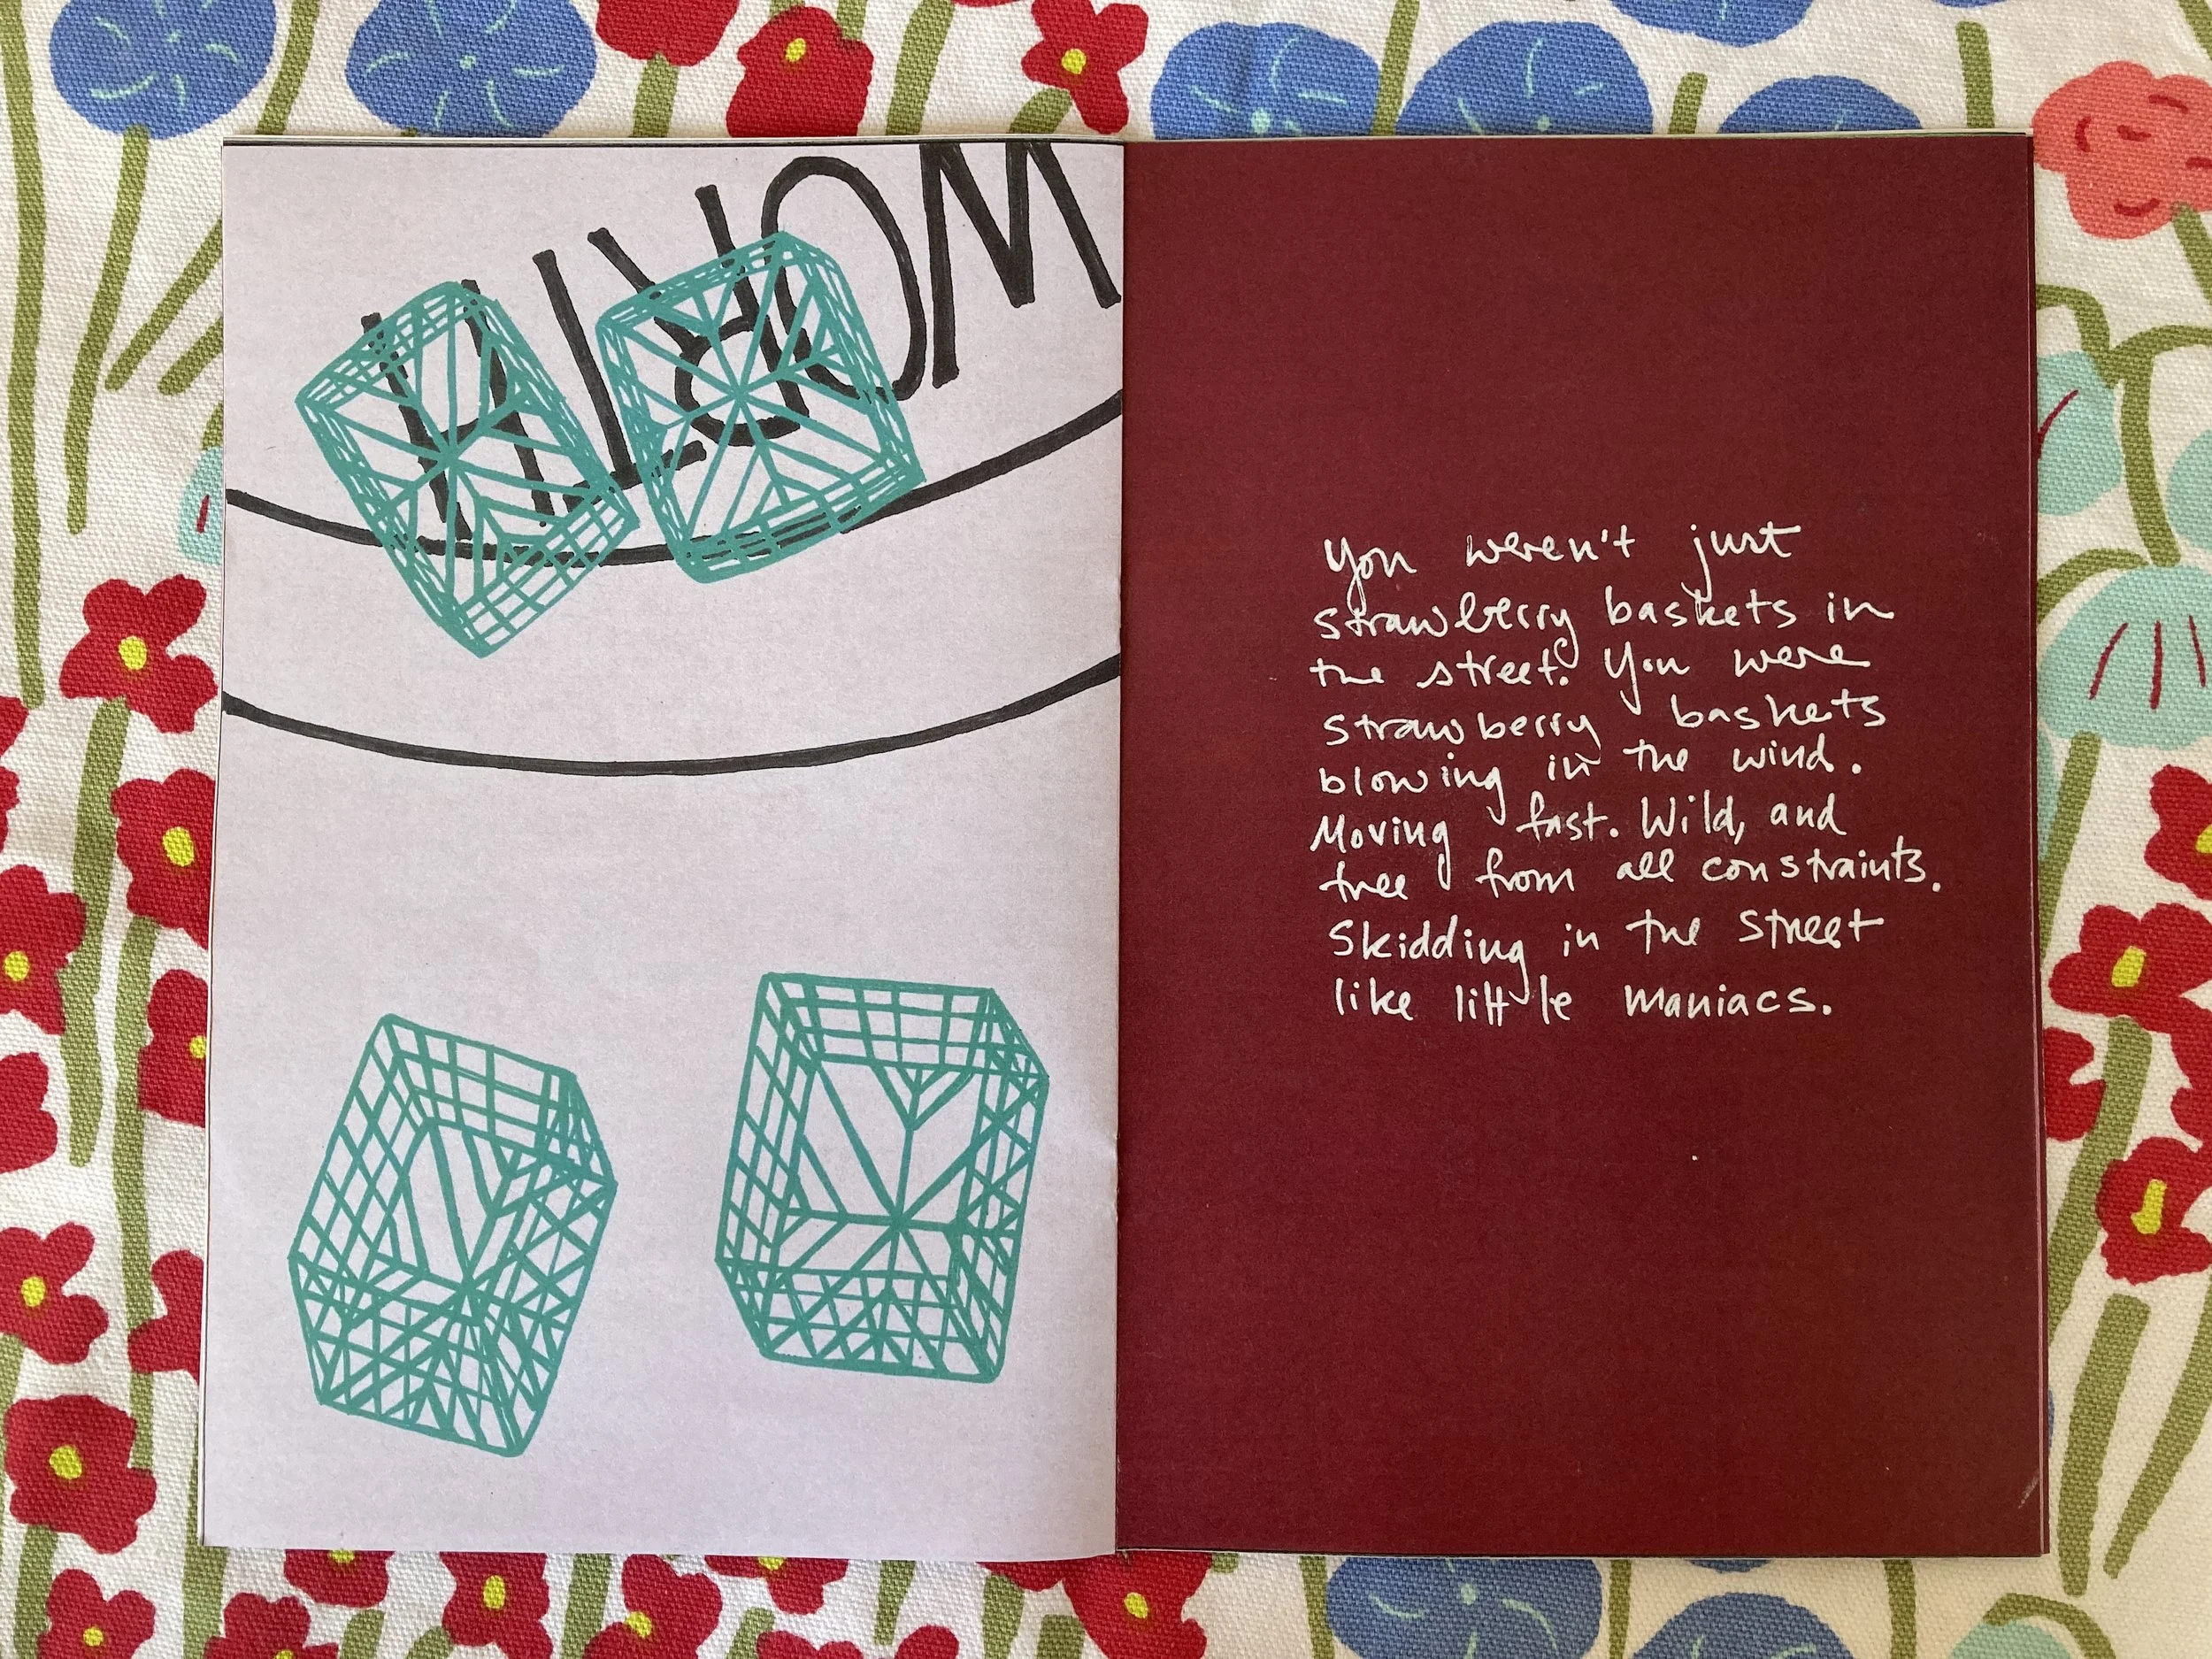 WORTH
You weren't just
strawberry baskets in
the street. You were
strawberry baskets
blowing in the wind.
Moving fast. Wild, and
free from all constraints.
Skidding in the street
like little maniacs.